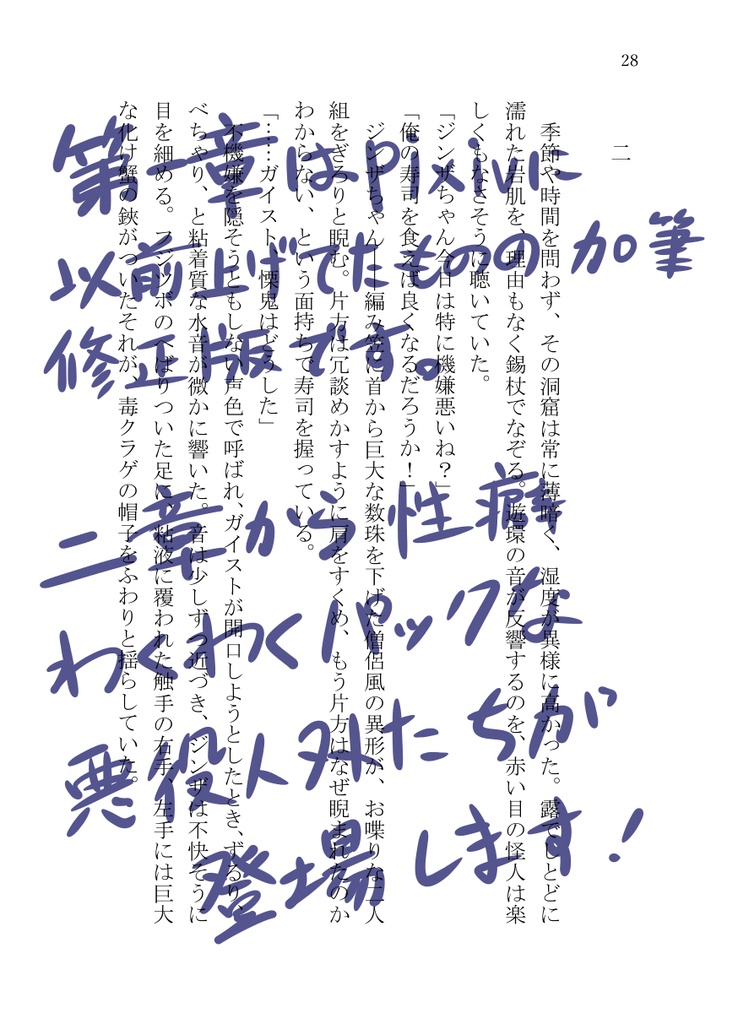 28
二
季節や時間を問わず、その洞窟は常に薄暗く、湿度が異様に高かった。露でしとどに
濡れた岩肌を、理由もなく錫杖でなぞる。遊環の音が反響するのを、赤い目の怪人は楽
しくもなさそうに聴いていた。
「ジンザちゃん今日は特に機嫌悪いね？」
「俺の寿司を食えば良くなるだろうか！」
ジンザちゃん――編み笠に首から巨大な数珠を下げた僧侶風の異形が、お喋りな二人
組をぎろりと睨む。片方は冗談めかすように肩をすくめ、もう片方はなぜ睨まれたのか
わからない、という面持ちで寿司を握っている。
「……ガイスト、慄鬼はどうした」
不機嫌を隠そうともしない声色で呼ばれ、ガイストが開口しようとしたとき、ずるり、
べちゃり、と粘着質な水音が微かに響いた。音は少しずつ近づき、ジンザは不快そうに
目を細める。フジツボのへばりついた足に、粘液に覆われた触手の右手、左手には巨大
な化け蟹の鋏がついたそれが、毒クラゲの帽子をふわりと揺らしていた。
第一章はpixivに
以前上げてたものの加筆
修正版です。
二章から性癖
わくわくパックな
悪役人外たちが
登場します！